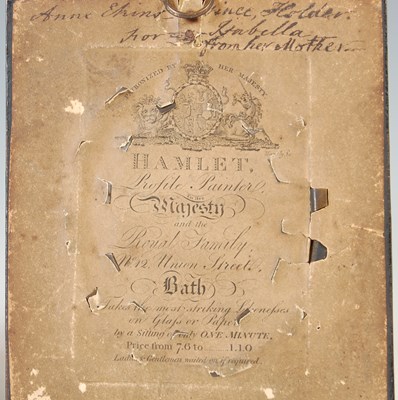 Anne Ekins Vince Holder.
for Isabella
from her Mother
PATRONIZED BY HER MAJESTY
HAMLET,
Profile Painter,
to her
Majesty
and the
Royal Family,
No. 12 Union Street,
Bath
Takes the most striking Likenesses
on Glass or Paper
by a Sitting of only ONE MINUTE,
Price from 7.6 to 1.1.0
Ladies & Gentlemen waited on if required.